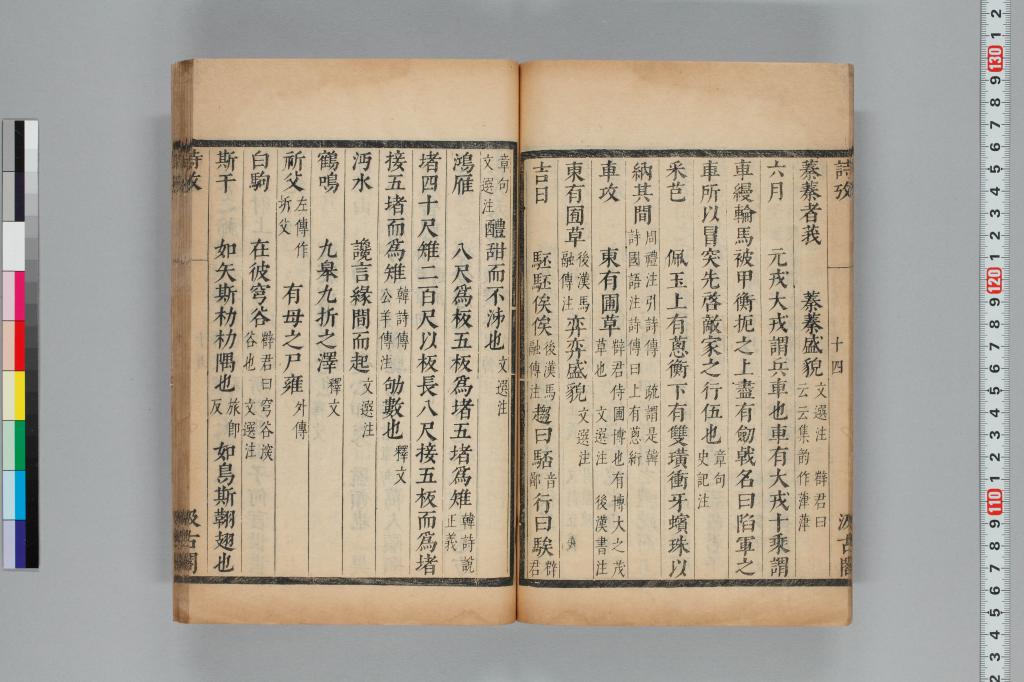 詩攷 十四 汲古閣
蓁蓁者莪 蓁蓁盛貌 文選注 薛君曰 云云集韵作
六月 元戎大戎謂兵車也車有大戎十乘謂
車縵輪馬被甲衡扼之上盡有劒戟名曰陷軍之
車所以冒突先啓敵家之行伍也 章句 史記注
采芑 佩玉上有蔥衡下有雙璜衝牙蠙珠以
納其間 周禮注引詩傳 疏謂是韓詩 國語注詩傳曰上有蔥珩
車攻 東有圃草 薛君侍圃博也有博大之茂草也 文選注 後漢書注
東有囿草 後漢馬融傳注 弈弈盛貌 文選注
吉日 駓駓俟俟 後漢馬融傳注 趨曰駓 音鄙 行曰騃 薛君
章句 文選注 醴甜而不泲也 文選注
鴻雁 八尺爲板五板爲堵五堵爲雉 韓詩說 正義
堵四十尺雉二百尺以板長八尺接五板而爲堵
接五堵而爲雉 韓詩傳 公羊傳注 劬數也 釋文
沔水 讒言緣間而起 文選注
鶴鳴 九皋九折之澤 釋文
祈父 左傳作圻父 有母之尸雍 外傳
白駒 在彼穹谷 薛君曰穹谷深谷也 文選注
斯干 如矢斯朸朸隅也 旅卽反 如鳥斯翱翅也
詩攷 汲古閣